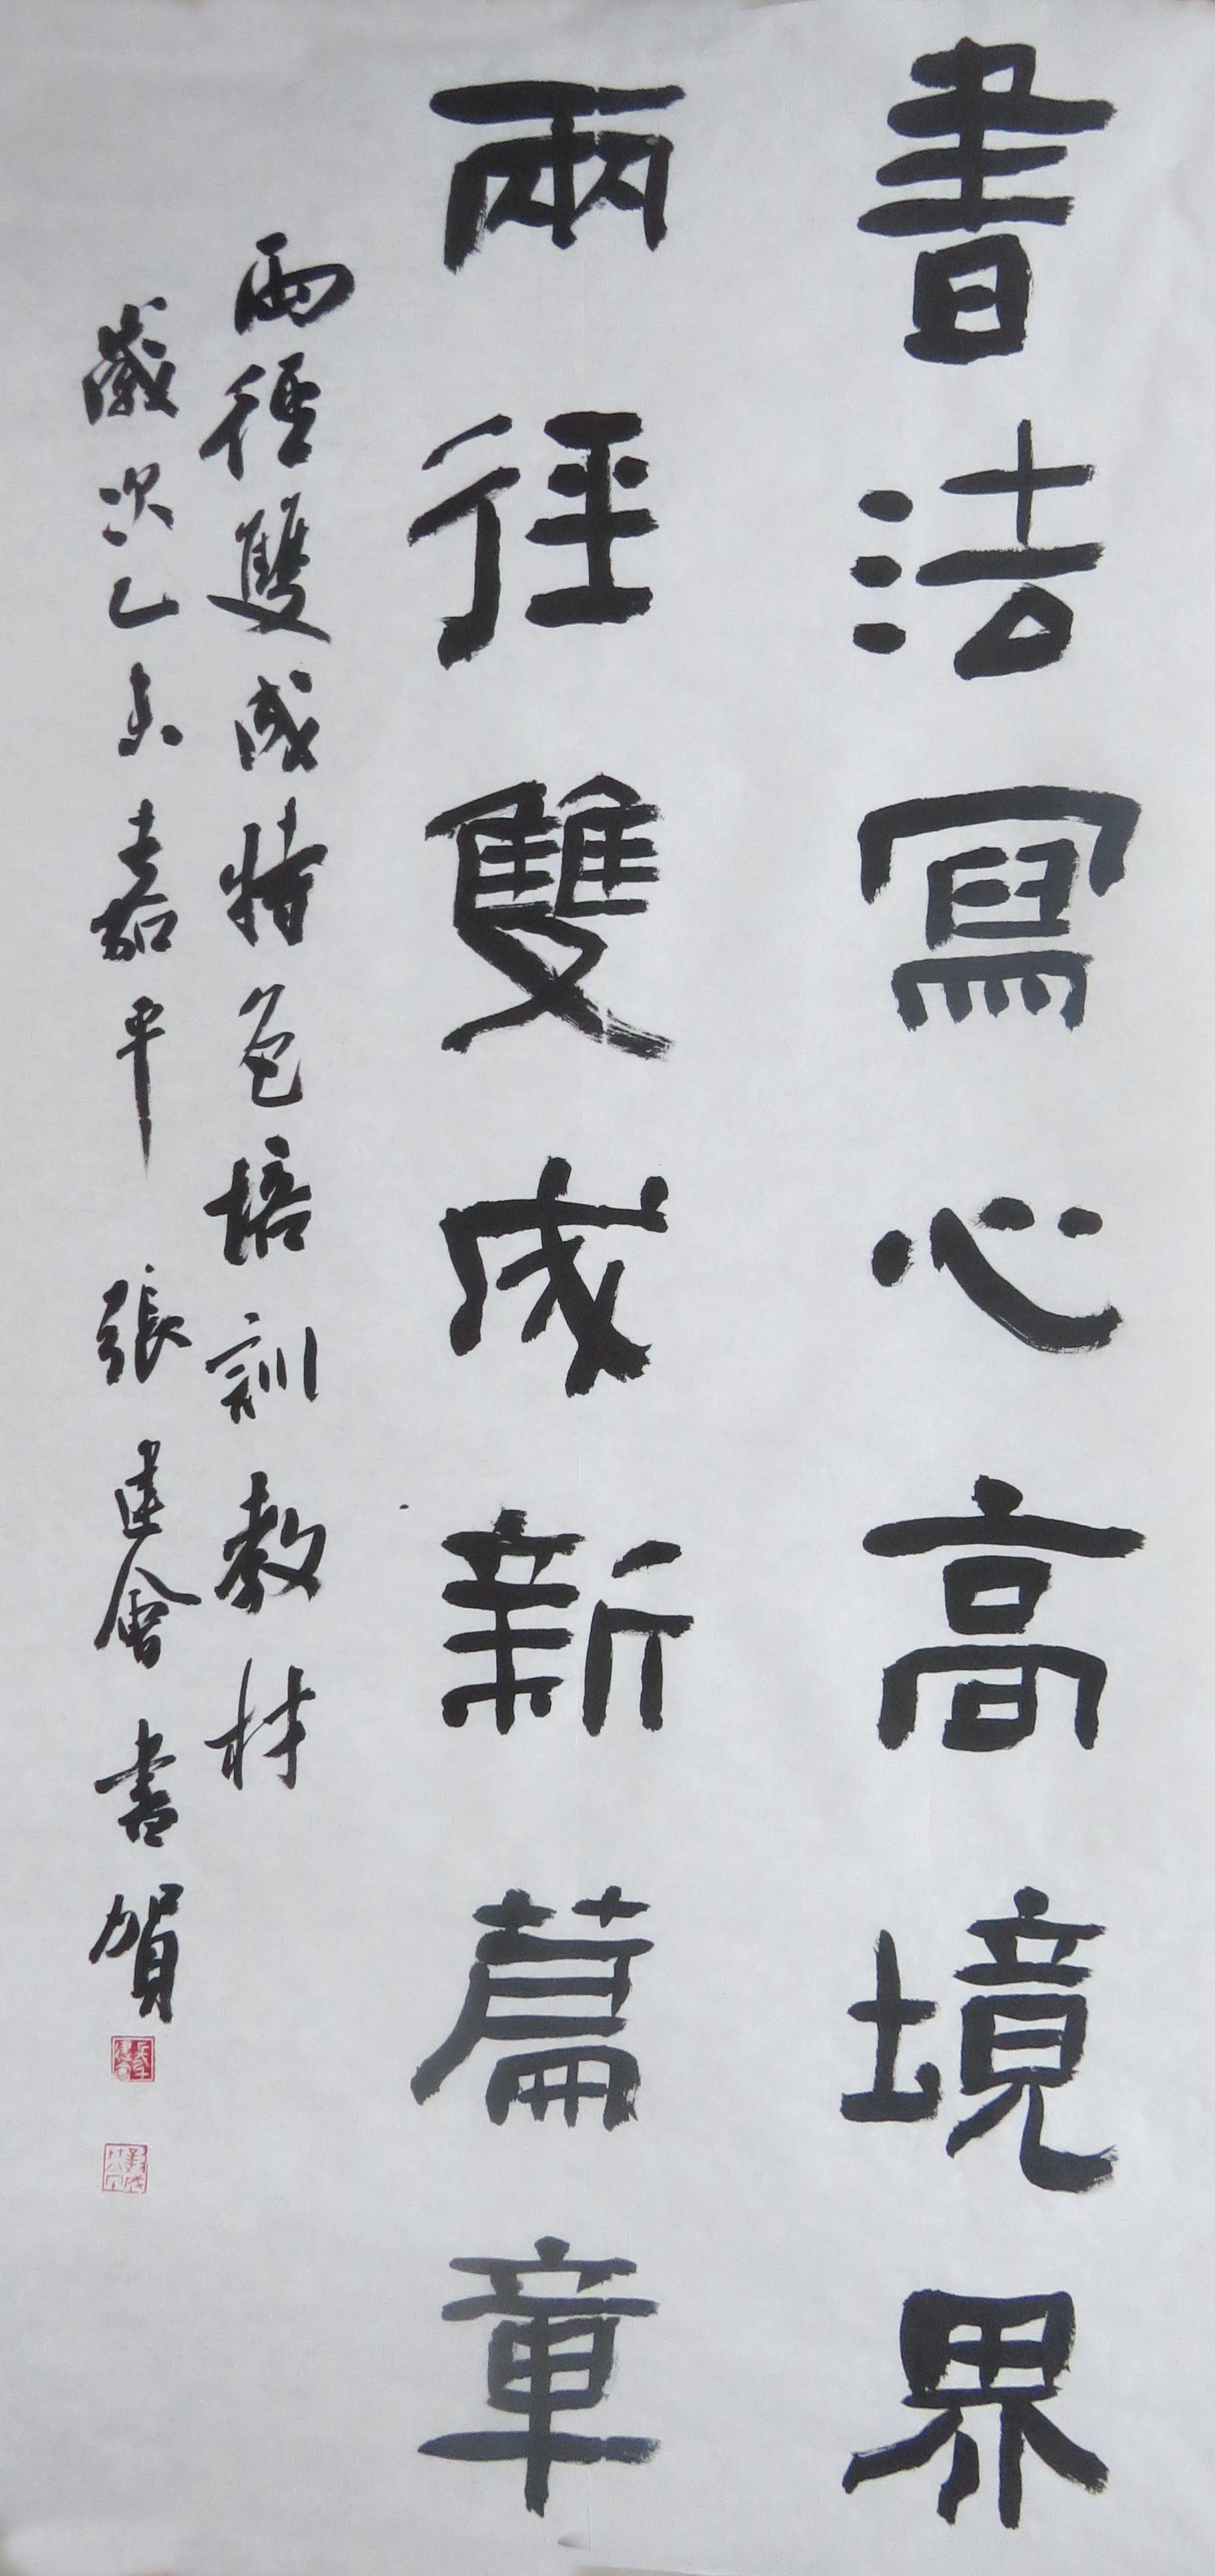 書法寫心高境界
兩徑雙成新篇章
兩徑雙成特色培訓教材
歲次乙未嘉平 張建會書賀